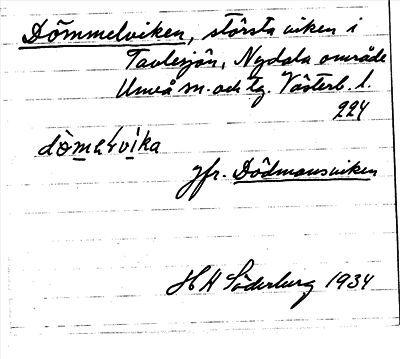 Dömmelviken, största viken i
Tavlesjön, Nydala område
Umeå sn. och tg. Västerb. l.
224
dömelvika
jfr. Dödmansviken
H H Söderberg 1934